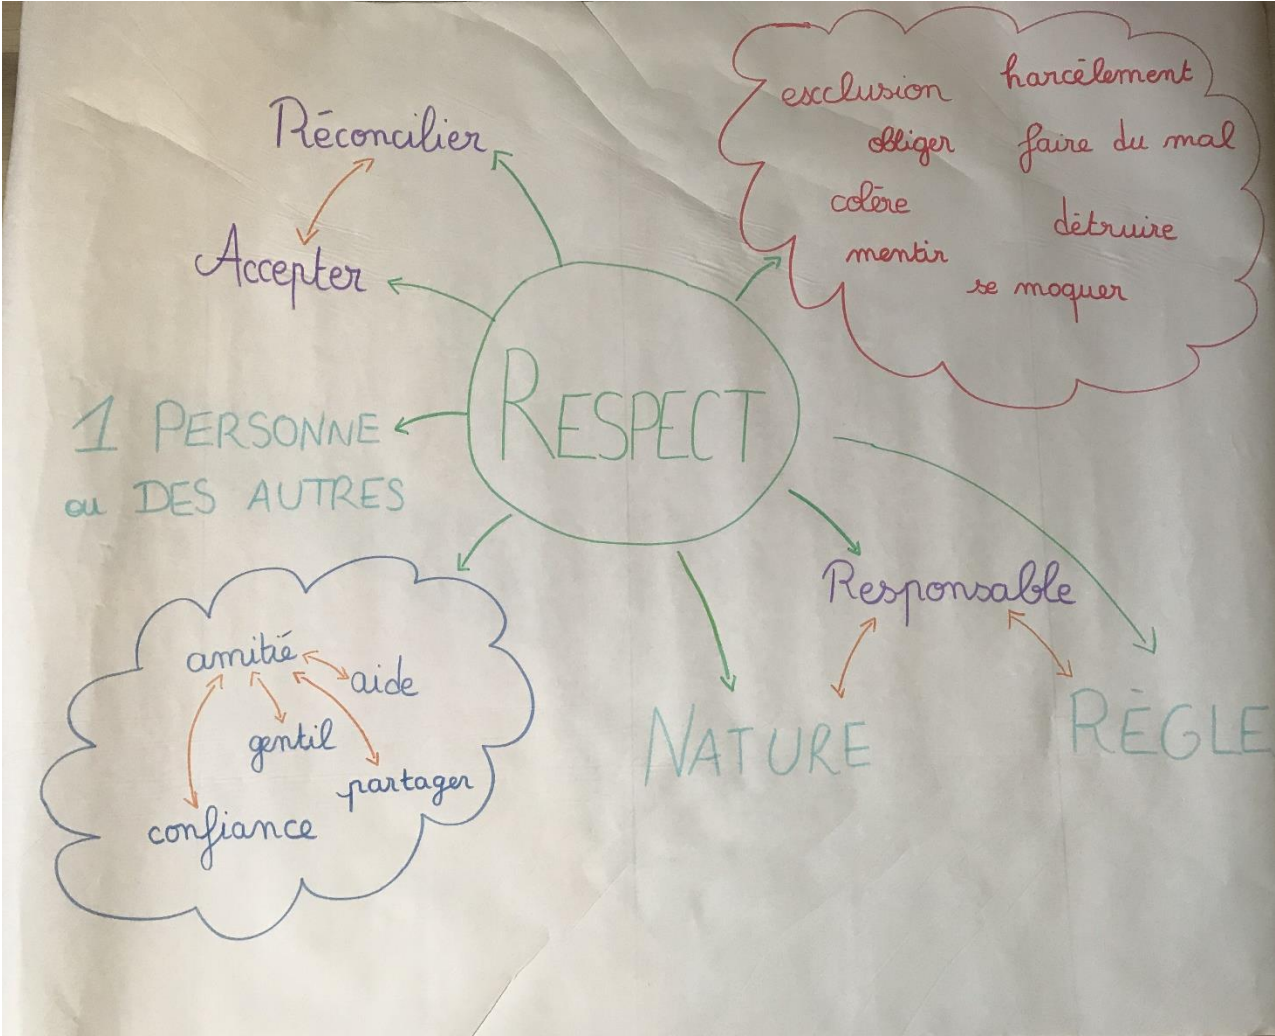 Réconcilier
Accepter
exclusion
harcèlement
obliger
faire du mal
colère
détruire
mentir
se moquer
RESPECT
1 PERSONNE
ou DES AUTRES
Responsable
NATURE
RÈGLE
amitié
aide
gentil
partager
confiance